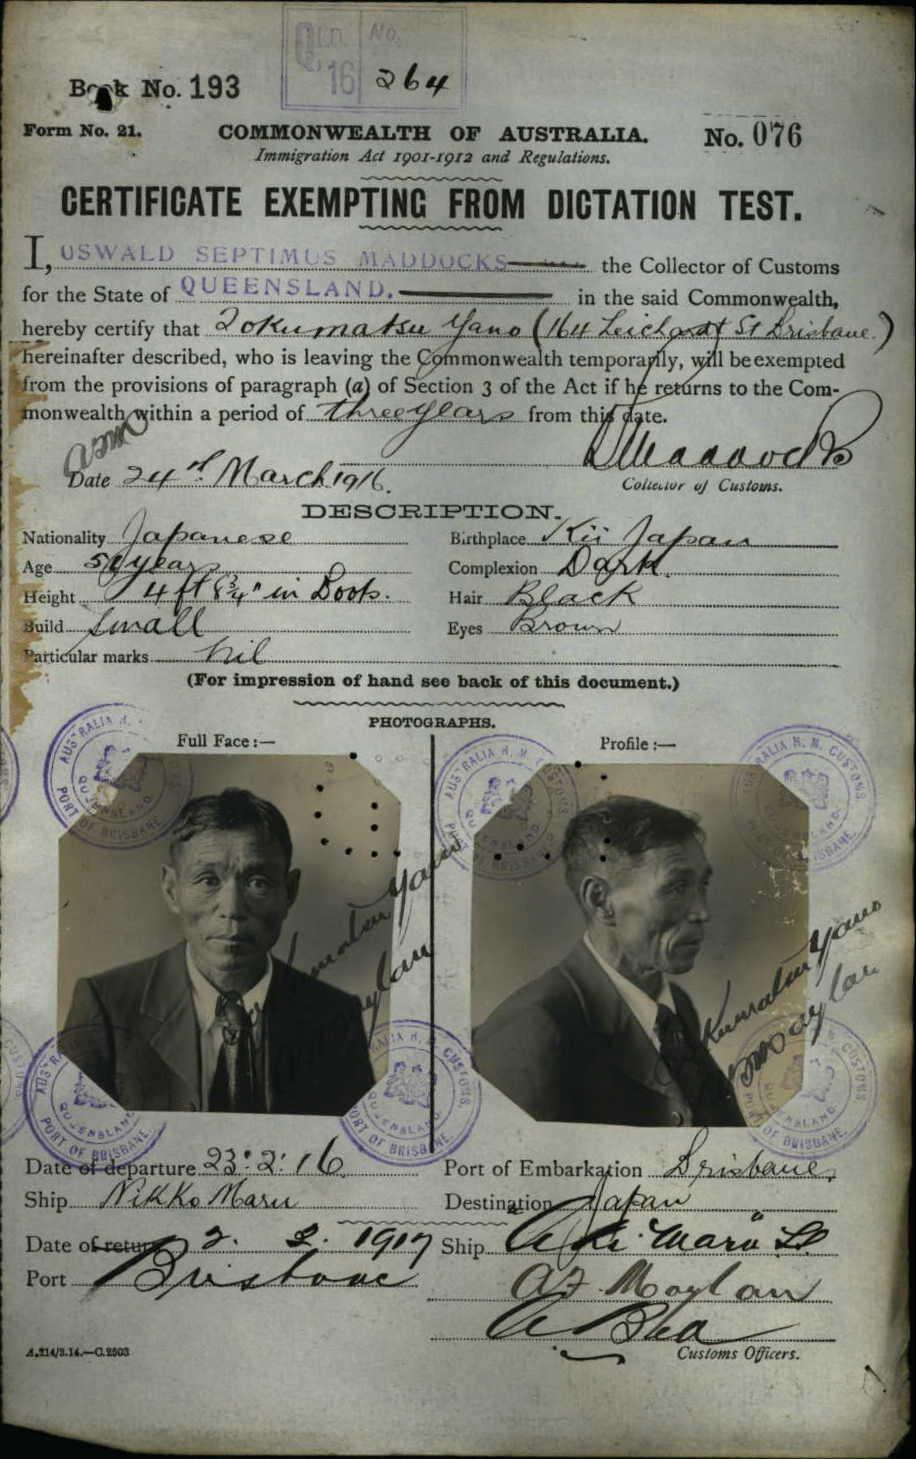 Qld. No.
16 264
Book No. 193
Form No. 21.
COMMONWEALTH OF AUSTRALIA.
No. 076
Immigration Act 1901-1912 and Regulations.
CERTIFICATE EXEMPTING FROM DICTATION TEST.
I, OSWALD SEPTIMUS MADDOCKS the Collector of Customs
for the State of QUEENSLAND. in the said Commonwealth,
hereby certify that Tokumatsu Yano (164 Leichardt St Brisbane.)
hereinafter described, who is leaving the Commonwealth temporarily, will be exempted
from the provisions of paragraph (a) of Section 3 of the Act if he returns to the Com-
monwealth within a period of three years from this date.
OSMaddocks
Date 24th March 1916.
Collector of Customs.
DESCRIPTION.
Nationality Japanese
Birthplace Kii Japan
Age 50 years
Complexion Dark.
Height 4 ft 8¾" in Boots.
Hair Black
Build Small
Eyes Brown
Particular marks nil
(For impression of hand see back of this document.)
PHOTOGRAPHS.
Full Face:—
Profile:—
AUSTRALIA H. M. CUSTOMS
QUEENSLAND
PORT OF BRISBANE
Tokumatsu Yano
Moylan
Tokumatsu Yano
Moylan
Date of departure 23. 2. 16
Port of Embarkation Brisbane,
Ship Nikko Maru
Destination Japan
Date of return 2. 3. 1917
Ship Aki "Maru"
Port Brisbane
AF Moylan
Customs Officers.
A.214/3.14.—C.2503